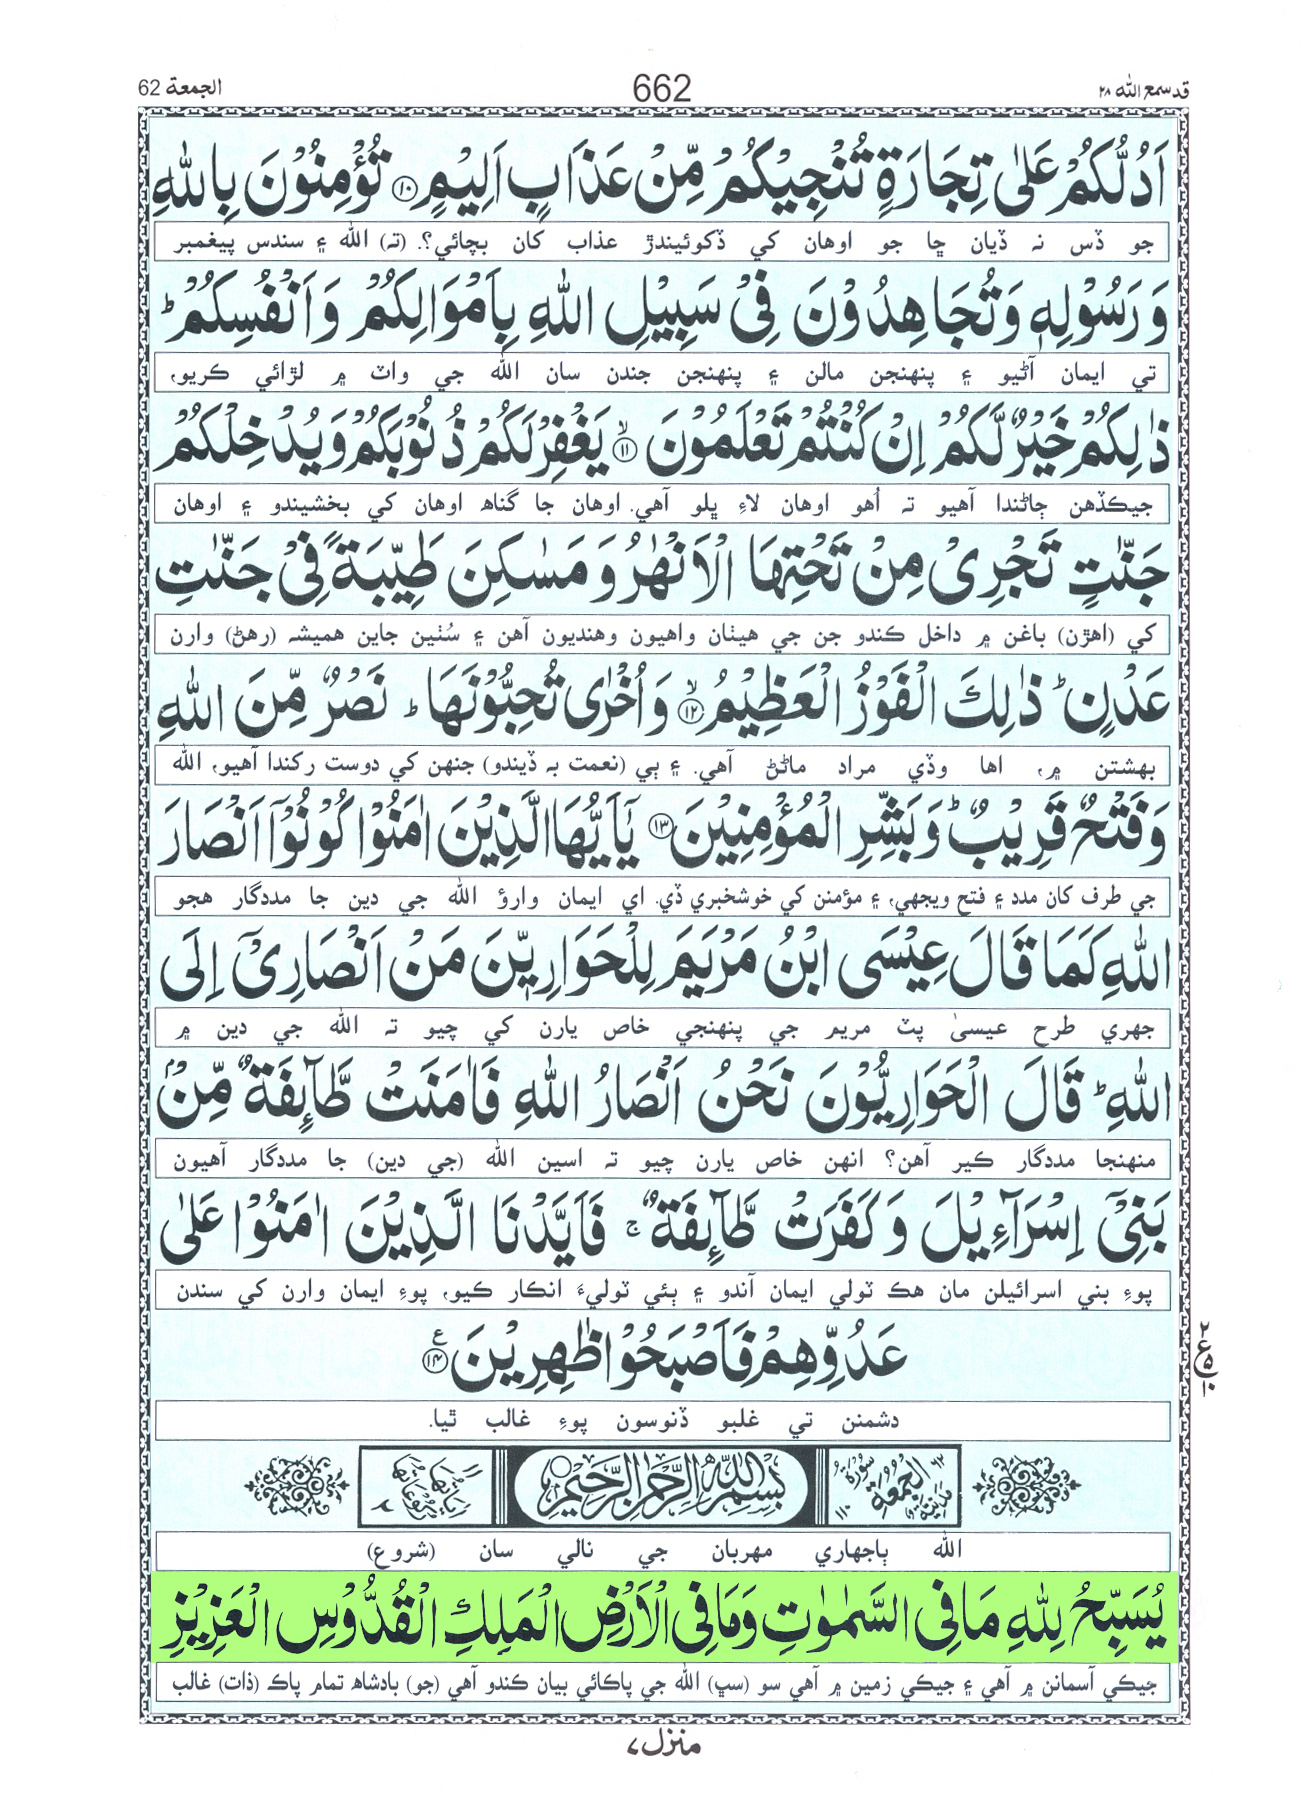 قد سمع الله ٢٨
662
الجمعة 62
اَدُلُّكُمْ عَلٰی تِجَارَةٍ تُنْجِیْكُمْ مِّنْ عَذَابٍ اَلِیْمٍ ۝۱۰ تُؤْمِنُوْنَ بِاللّٰهِ
جو ڏس نہ ڏيان ڇا جو اوهان کي ڏکوئيندڙ عذاب کان بچائي؟. (تہ) الله ۽ سندس پيغمبر
وَرَسُوْلِهٖ وَتُجَاهِدُوْنَ فِیْ سَبِیْلِ اللّٰهِ بِاَمْوَالِكُمْ وَاَنْفُسِكُمْ ؕ
تي ايمان آڻيو ۽ پنهنجن مالن ۽ پنهنجن جندن سان الله جي واٽ ۾ لڙائي ڪريو،
ذٰلِكُمْ خَیْرٌ لَّكُمْ اِنْ كُنْتُمْ تَعْلَمُوْنَ ۝۱۱ۙ یَغْفِرْ لَكُمْ ذُنُوْبَكُمْ وَیُدْخِلْكُمْ
جيڪڏهن ڄاڻندا آهيو تہ اُهو اوهان لاءِ ڀلو آهي. اوهان جا گناھ اوهان کي بخشيندو ۽ اوهان
جَنّٰتٍ تَجْرِیْ مِنْ تَحْتِهَا الْاَنْهٰرُ وَمَسٰكِنَ طَیِّبَةً فِیْ جَنّٰتِ
کي (اهڙن) باغن ۾ داخل ڪندو جن جي هيٺان واهيون وهنديون آهن ۽ سُٺين جاين هميشہ (رهڻ) وارن
عَدْنٍ ؕ ذٰلِكَ الْفَوْزُ الْعَظِیْمُ ۝۱۲ۙ وَاُخْرٰی تُحِبُّوْنَهَا ؕ نَصْرٌ مِّنَ اللّٰهِ
بهشتن ۾، اها وڏي مراد ماڻڻ آهي. ۽ ٻي (نعمت بہ ڏيندو) جنهن کي دوست رکندا آهيو، الله
وَفَتْحٌ قَرِیْبٌ ؕ وَبَشِّرِ الْمُؤْمِنِیْنَ ۝۱۳ یٰۤاَیُّهَا الَّذِیْنَ اٰمَنُوْا كُوْنُوْۤا اَنْصَارَ
جي طرف کان مدد ۽ فتح ويجهي، ۽ مؤمنن کي خوشخبري ڏي. اي ايمان وارؤ الله جي دين جا مددگار هجو
اللّٰهِ كَمَا قَالَ عِیْسَی ابْنُ مَرْیَمَ لِلْحَوَارِیّٖنَ مَنْ اَنْصَارِیْۤ اِلَی
جهري طرح عيسىٰ پٽ مريم جي پنهنجي خاص يارن کي چيو تہ الله جي دين ۾
اللّٰهِ ؕ قَالَ الْحَوَارِیُّوْنَ نَحْنُ اَنْصَارُ اللّٰهِ فَاٰمَنَتْ طَّآىِٕفَةٌ مِّنْۢ
منهنجا مددگار ڪير آهن؟ انهن خاص يارن چيو تہ اسين الله (جي دين) جا مددگار آهيون
بَنِیْۤ اِسْرَآءِیْلَ وَكَفَرَتْ طَّآىِٕفَةٌ ۚ فَاَیَّدْنَا الَّذِیْنَ اٰمَنُوْا عَلٰی
پوءِ بني اسرائيلن مان هڪ ٽولي ايمان آندو ۽ ٻئي ٽوليءَ انڪار ڪيو، پوءِ ايمان وارن کي سندن
عَدُوِّهِمْ فَاَصْبَحُوْا ظٰهِرِیْنَ ۝۱۴ ع
دشمنن تي غلبو ڏنوسون پوءِ غالب ٿيا.
٦٢ سُوْرَةُ الْجُمُعَةِ مَدَنِيَّةٌ ١١٠
بِسْمِ اللّٰهِ الرَّحْمٰنِ الرَّحِیْمِ
اٰیَاتُهَا ١١ رُكُوْعَاتُهَا ٢
الله ٻاجهاري مهربان جي نالي سان (شروع)
یُسَبِّحُ لِلّٰهِ مَا فِی السَّمٰوٰتِ وَمَا فِی الْاَرْضِ الْمَلِكِ الْقُدُّوْسِ الْعَزِیْزِ
جيڪي آسمانن ۾ آهي ۽ جيڪي زمين ۾ آهي سو (سڀ) الله جي پاڪائي بيان ڪندو آهي (جو) بادشاھ تمام پاڪ (ذات) غالب
منزل ٧